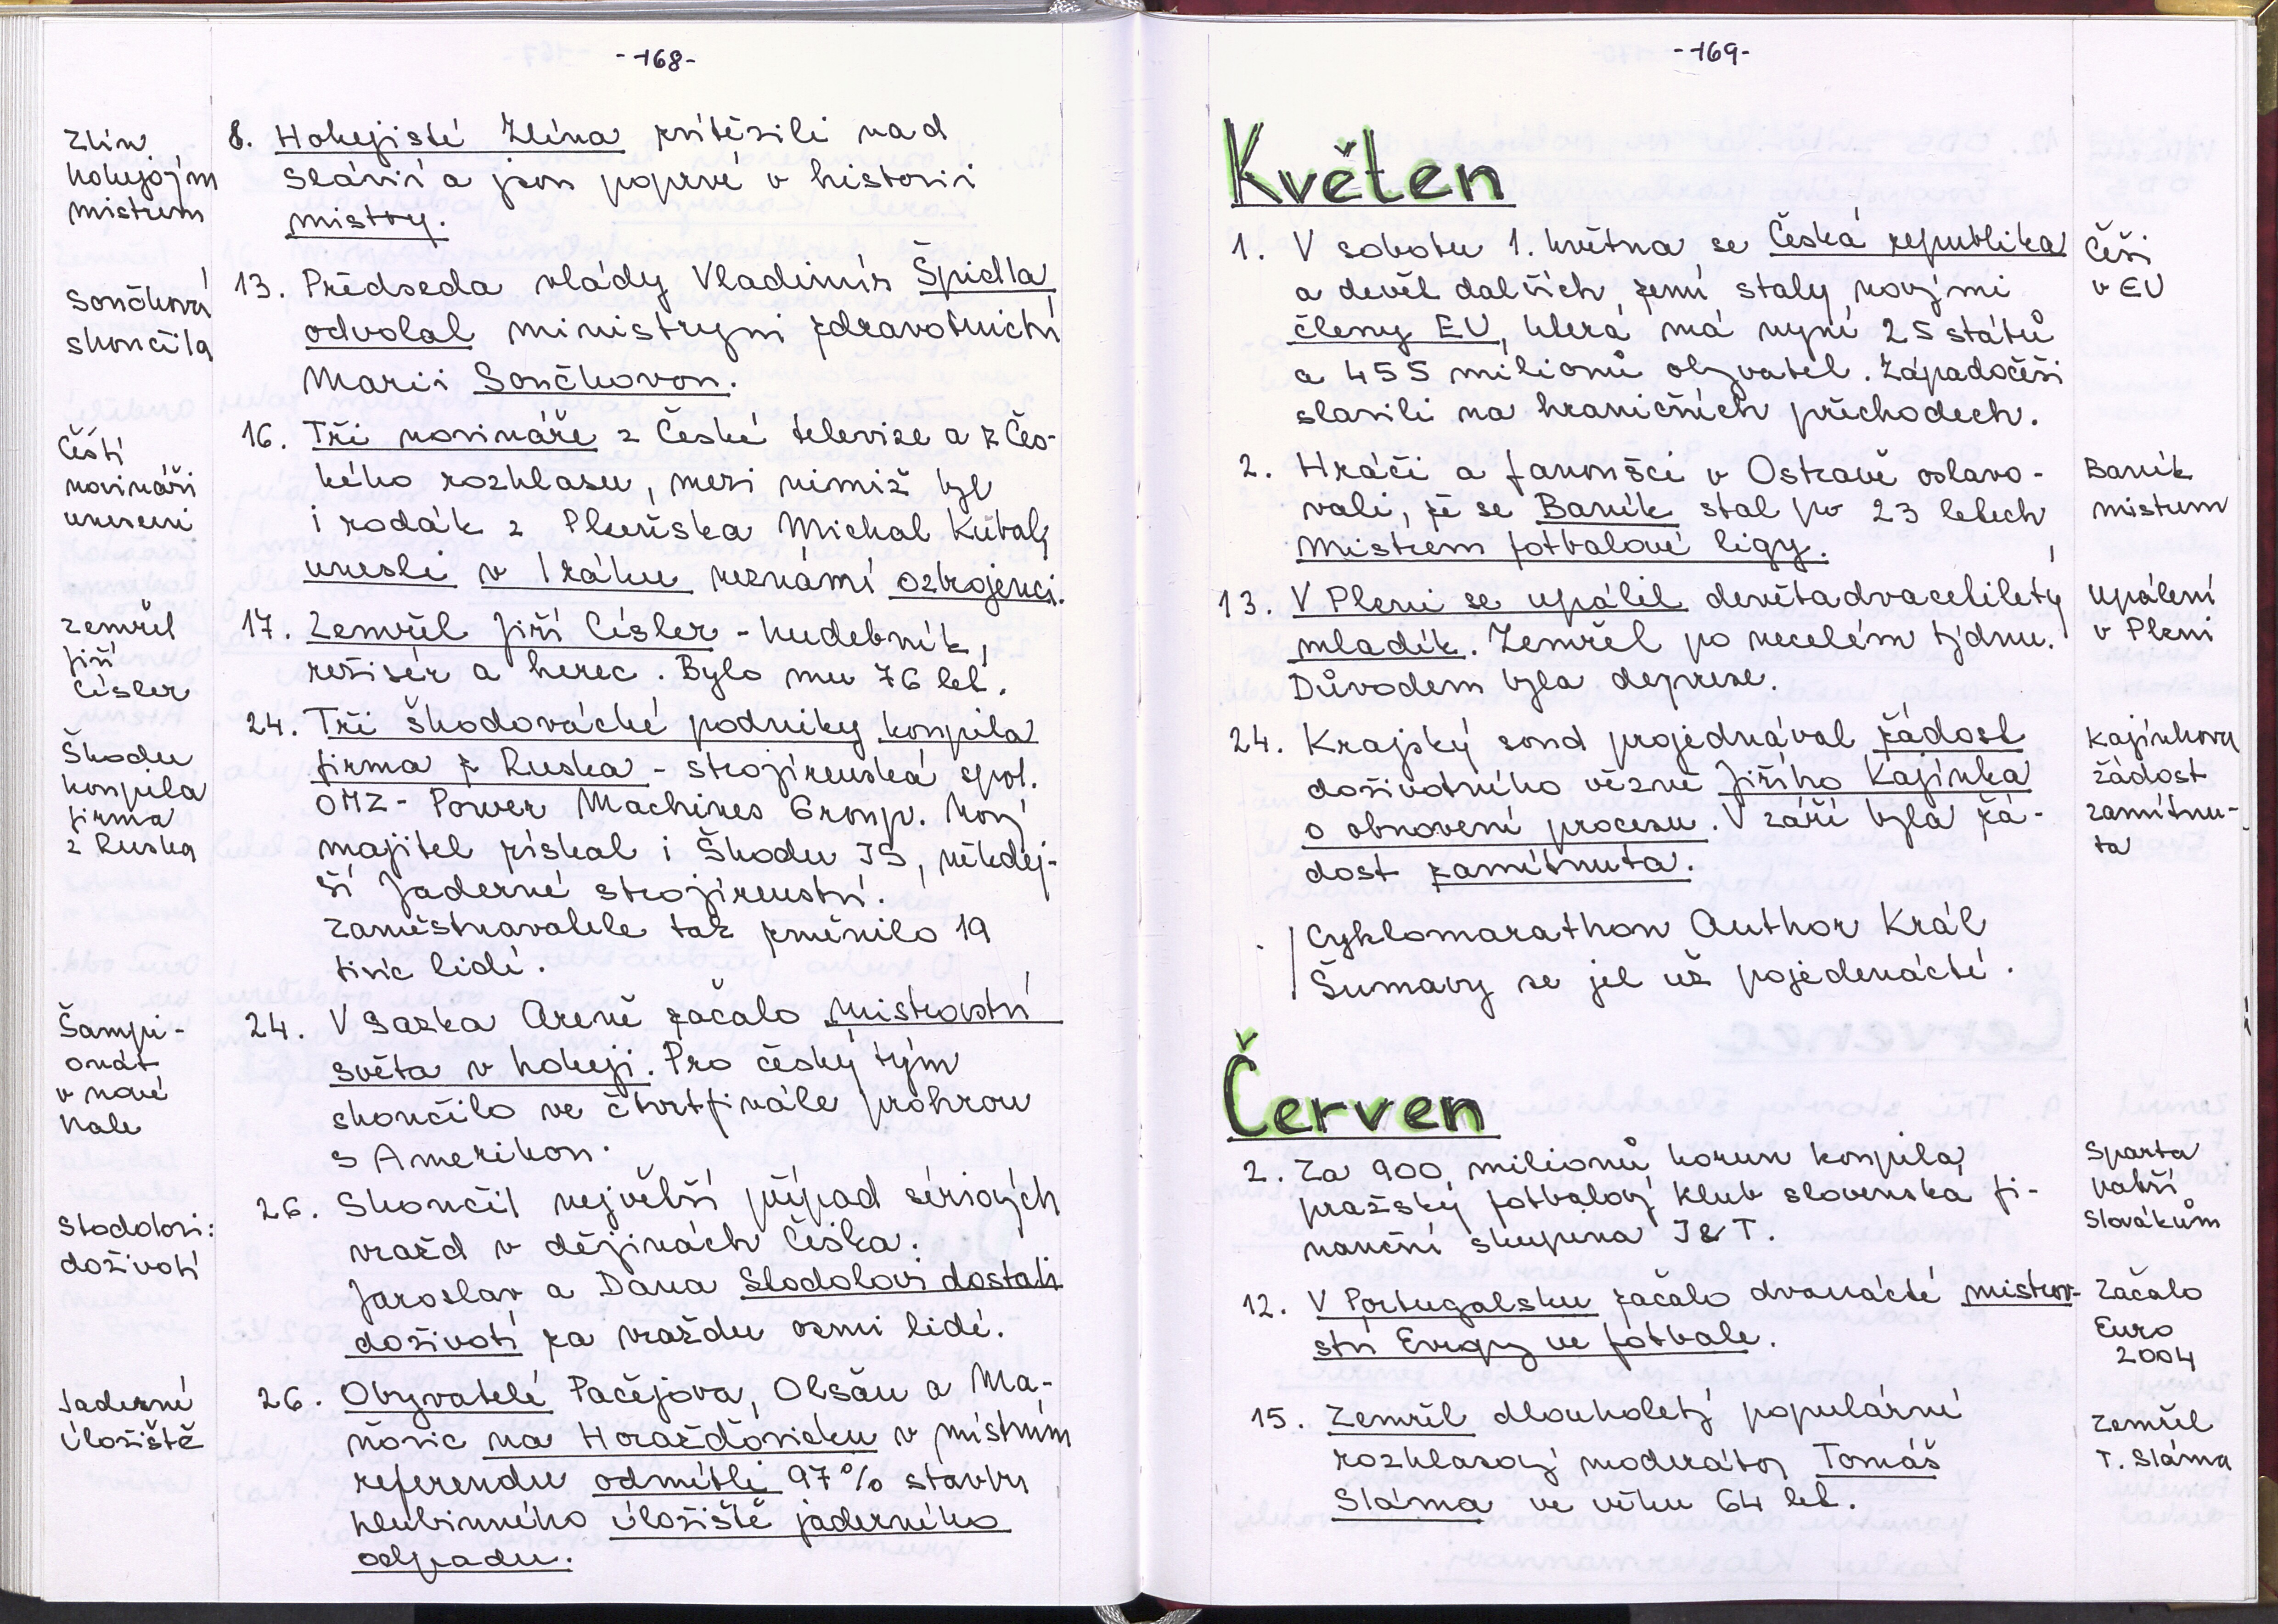 -168-
Zlín
hokejovým
mistrem
8. Hokejisté Zlína zvítězili nad
Slávií a jsou poprvé v historii
mistry.
Součková
skončila
13. Předseda vlády Vladimír Špidla
odvolal ministryni zdravotnictví
Marii Součkovou.
Čeští
novináři
uneseni
16. Tři novináře z České televize a z Čes-
kého rozhlasu, mezi nimiž byl
i rodák z Plzeňska Michal Kubal,
unesli v Iráku neznámí ozbrojenci.
Zemřel
Jiří
Císler
17. Zemřel Jiří Císler - hudebník,
režisér a herec. Bylo mu 76 let.
Škodu
koupila
firma
z Ruska
24. Tři škodovácké podniky koupila
firma z Ruska - strojírenská spol.
OMZ - Power Machines Group. Nový
majitel získal i Škodu JS, někdej-
ší Jaderné strojírenství.
Zaměstnavatele tak změnilo 19
tisíc lidí.
Šampi-
onát
v nové
hale
24. V Sazka Areně začalo mistrovství
světa v hokeji. Pro český tým
skončilo ve čtvrtfinále prohrou
s Amerikou.
Stodolovi:
doživotí
26. Skončil největší případ sériových
vražd v dějinách Česka.
Jaroslav a Dana Stodolovi dostali
doživotí za vraždu osmi lidí.
Jaderné
úložiště
26. Obyvatelé Pačejova, Olšan a Ma-
ňovic na Horažďovicku v místním
referendu odmítli 97% stavbu
hlubinného úložiště jaderného
odpadu.
-169-
Květen
1. V sobotu 1. května se Česká republika
a devět dalších zemí staly novými
členy EU, která má nyní 25 států
a 455 milionů obyvatel. Západočeši
slavili na hraničních přechodech.
Češi
v EU
2. Hráči a fanoušci v Ostravě oslavo-
vali, že se Baník stal po 23 letech
mistrem fotbalové ligy.
Baník
mistrem
13. V Plzni se upálil devětadvacetiletý
mladík. Zemřel po necelém týdnu.
Důvodem byla deprese.
Upálení
v Plzni
24. Krajský soud projednával žádost
doživotního vězně Jiřího Kajínka
o obnovení procesu. V září byla žá-
dost zamítnuta.
Kajínkova
žádost
zamítnu-
ta
Cyklomarathon Author Král
Šumavy se jel už pojedenácté.
Červen
2. Za 900 milionů korun koupila
pražský fotbalový klub slovenská fi-
nanční skupina J&T.
Sparta
patří
Slovákům
12. V Portugalsku začalo dvanácté mistrov-
ství Evropy ve fotbale.
Začalo
Euro
2004
15. Zemřel dlouholetý populární
rozhlasový moderátor Tomáš
Sláma ve věku 64 let.
Zemřel
T. Sláma